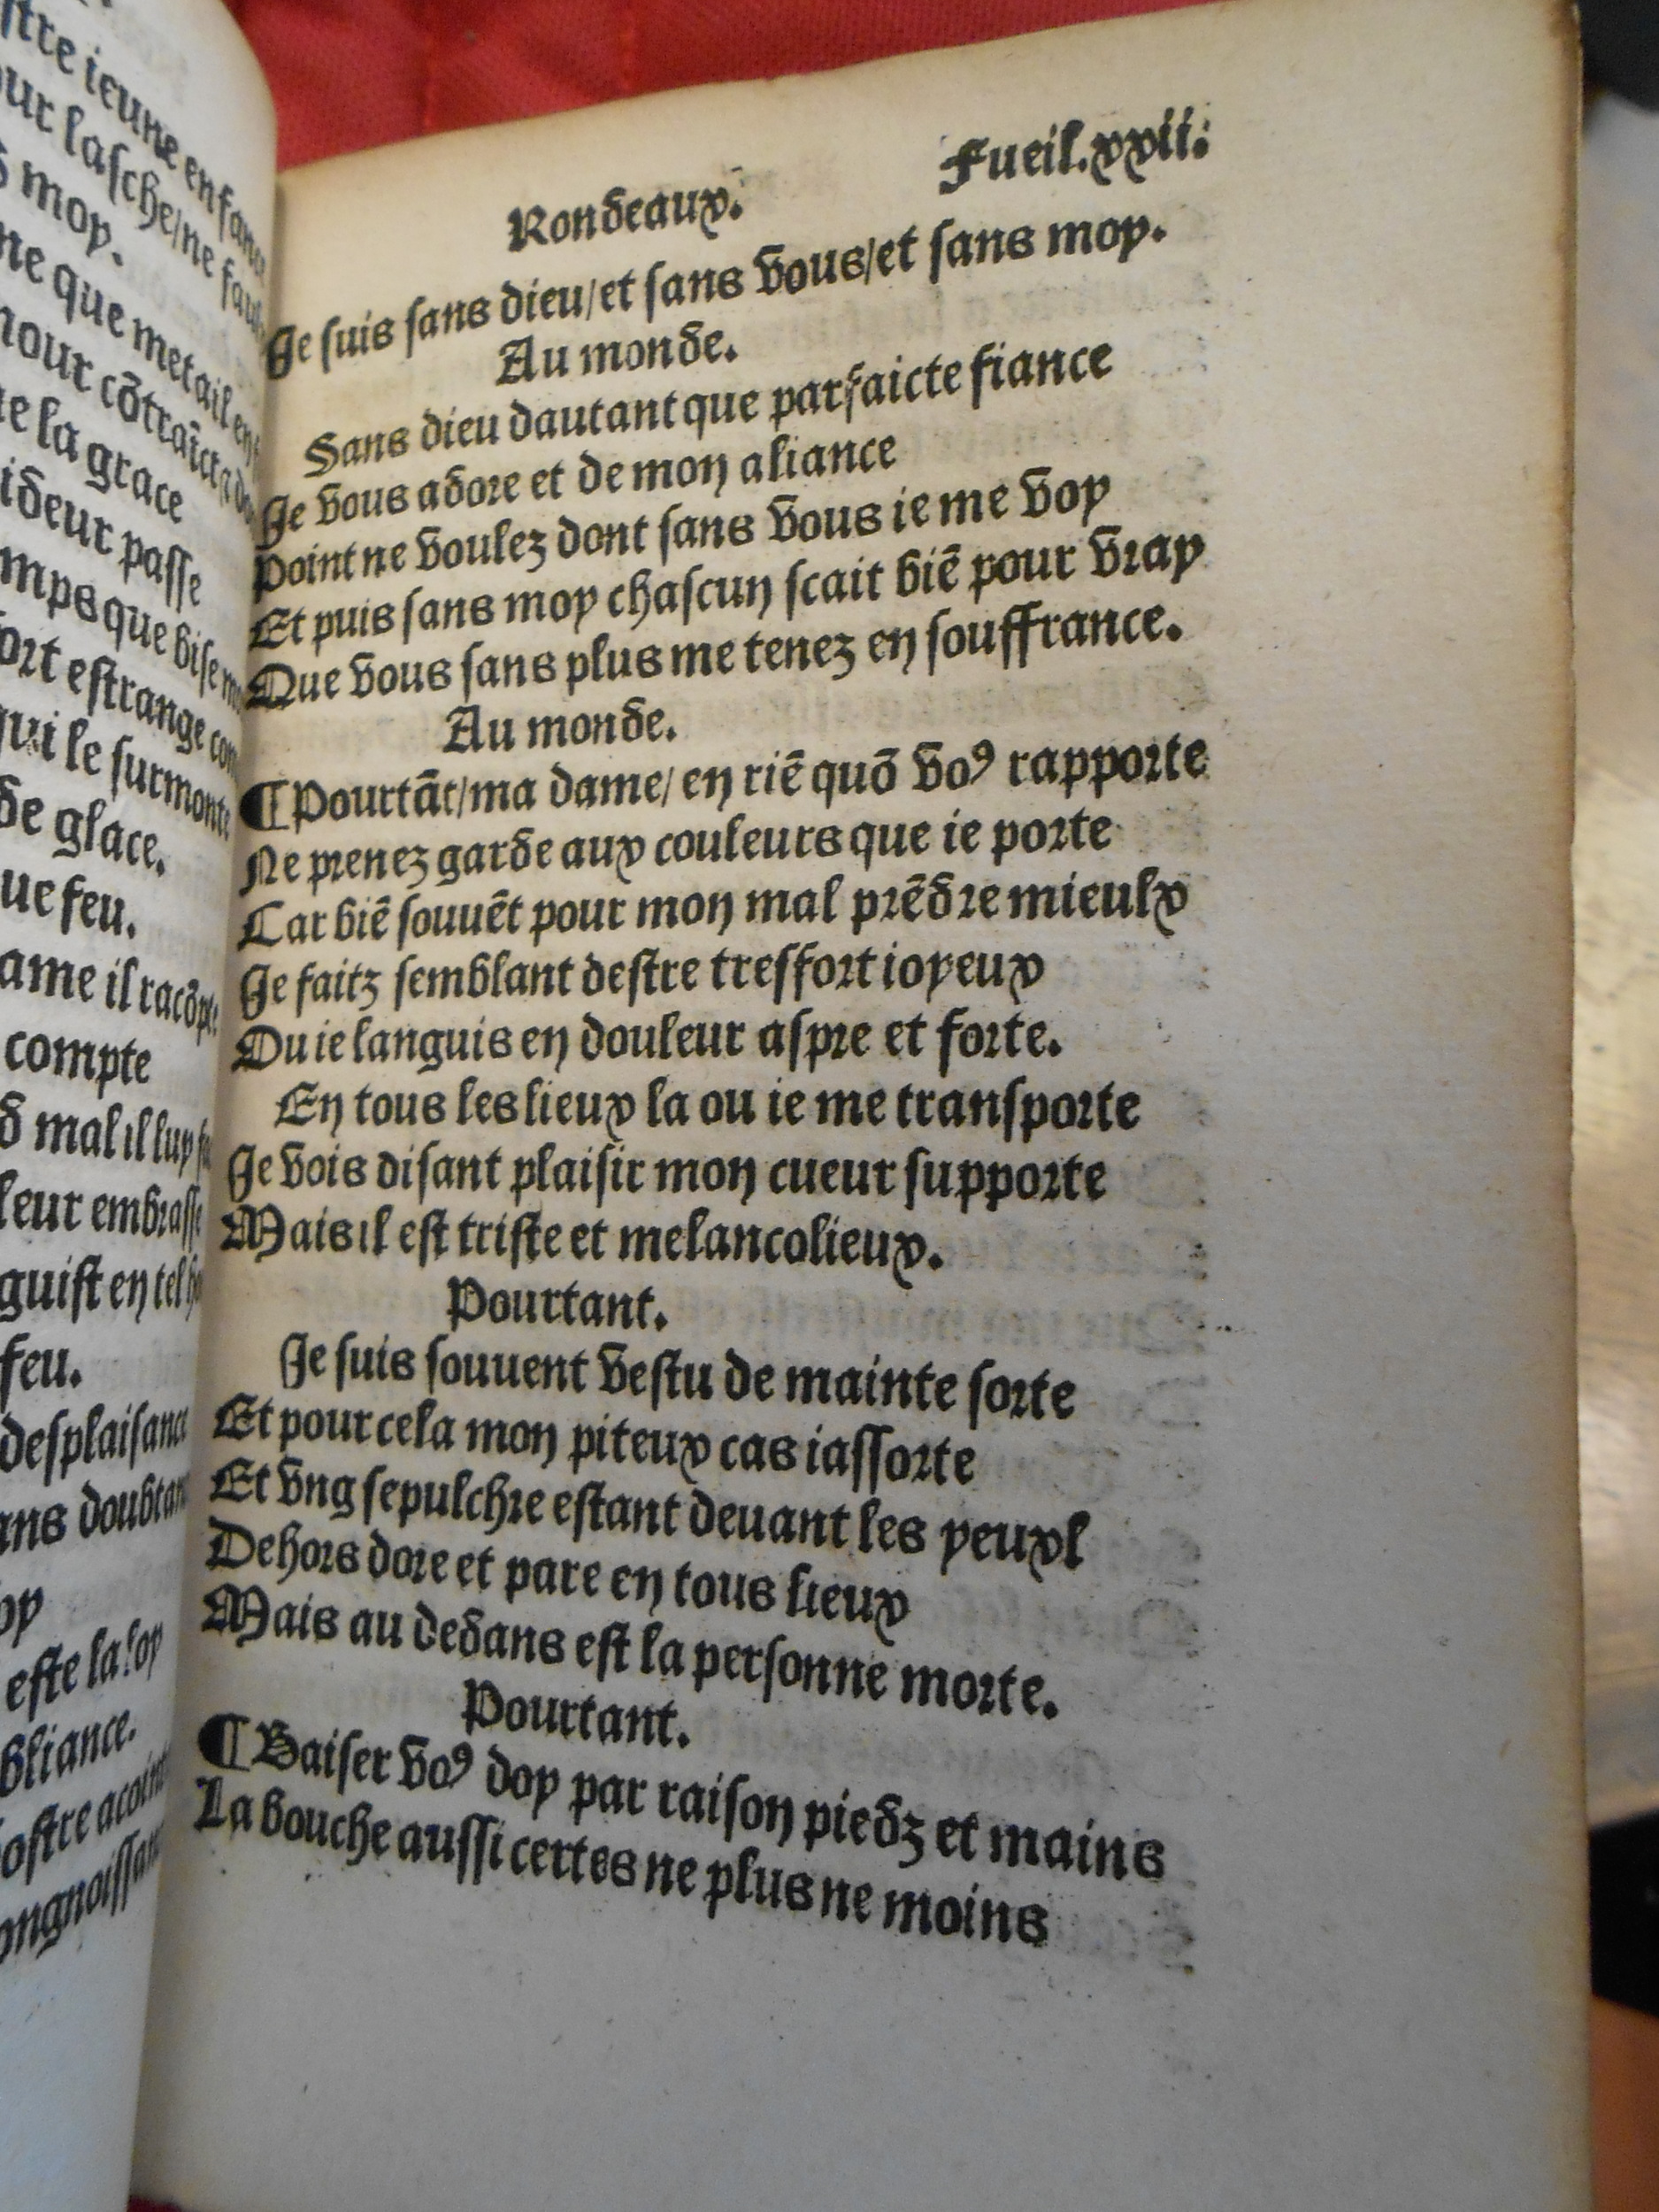 stre ieune enfanc
our lasche/ne fau
moy.
ne que metail en
nour cõtraĩct a do
e la grace
ideur passe
mps que bise mo
ort estrange con
ui le surmonte
de glace.
ue feu.
ame il racõpte
compte
õ mal il luy fu
leur embrasse
guist en tel he
feu.
desplaisance
ans doubtan
oy
este la loy
bliance.
ostre acoint
ongnoissan
Rondeaux. Fueil.xxii.
Je suis sans dieu/et sans vous/et sans moy.
Au monde.
Sans dieu dautant que parfaicte fiance
Je vous adore et de mon aliance
Point ne voulez dont sans vous ie me voy
Et puis sans moy chascun scait biẽ pour vray
Que vous sans plus me tenez en souffrance.
Au monde.
¶Pourtãt/ma dame/ en riẽ quõ voꝰ rapporte
Ne prenez garde aux couleurs que ie porte
Car biẽ souuẽt pour mon mal prẽdre mieulx
Je faitz semblant destre tresfort ioyeux
Ou ie languis en douleur aspre et forte.
En tous les lieux la ou ie me transporte
Je vois disant plaisir mon cueur supporte
Mais il est triste et melancolieux.
Pourtant.
Je suis souuent vestu de mainte sorte
Et pour cela mon piteux cas iassorte
Et vng sepulchre estant deuant les yeuxl
Dehors dore et pare en tous lieux
Mais au dedans est la personne morte.
Pourtant.
¶Baiser voꝰ doy par raison piedz et mains
La bouche aussi certes ne plus ne moins